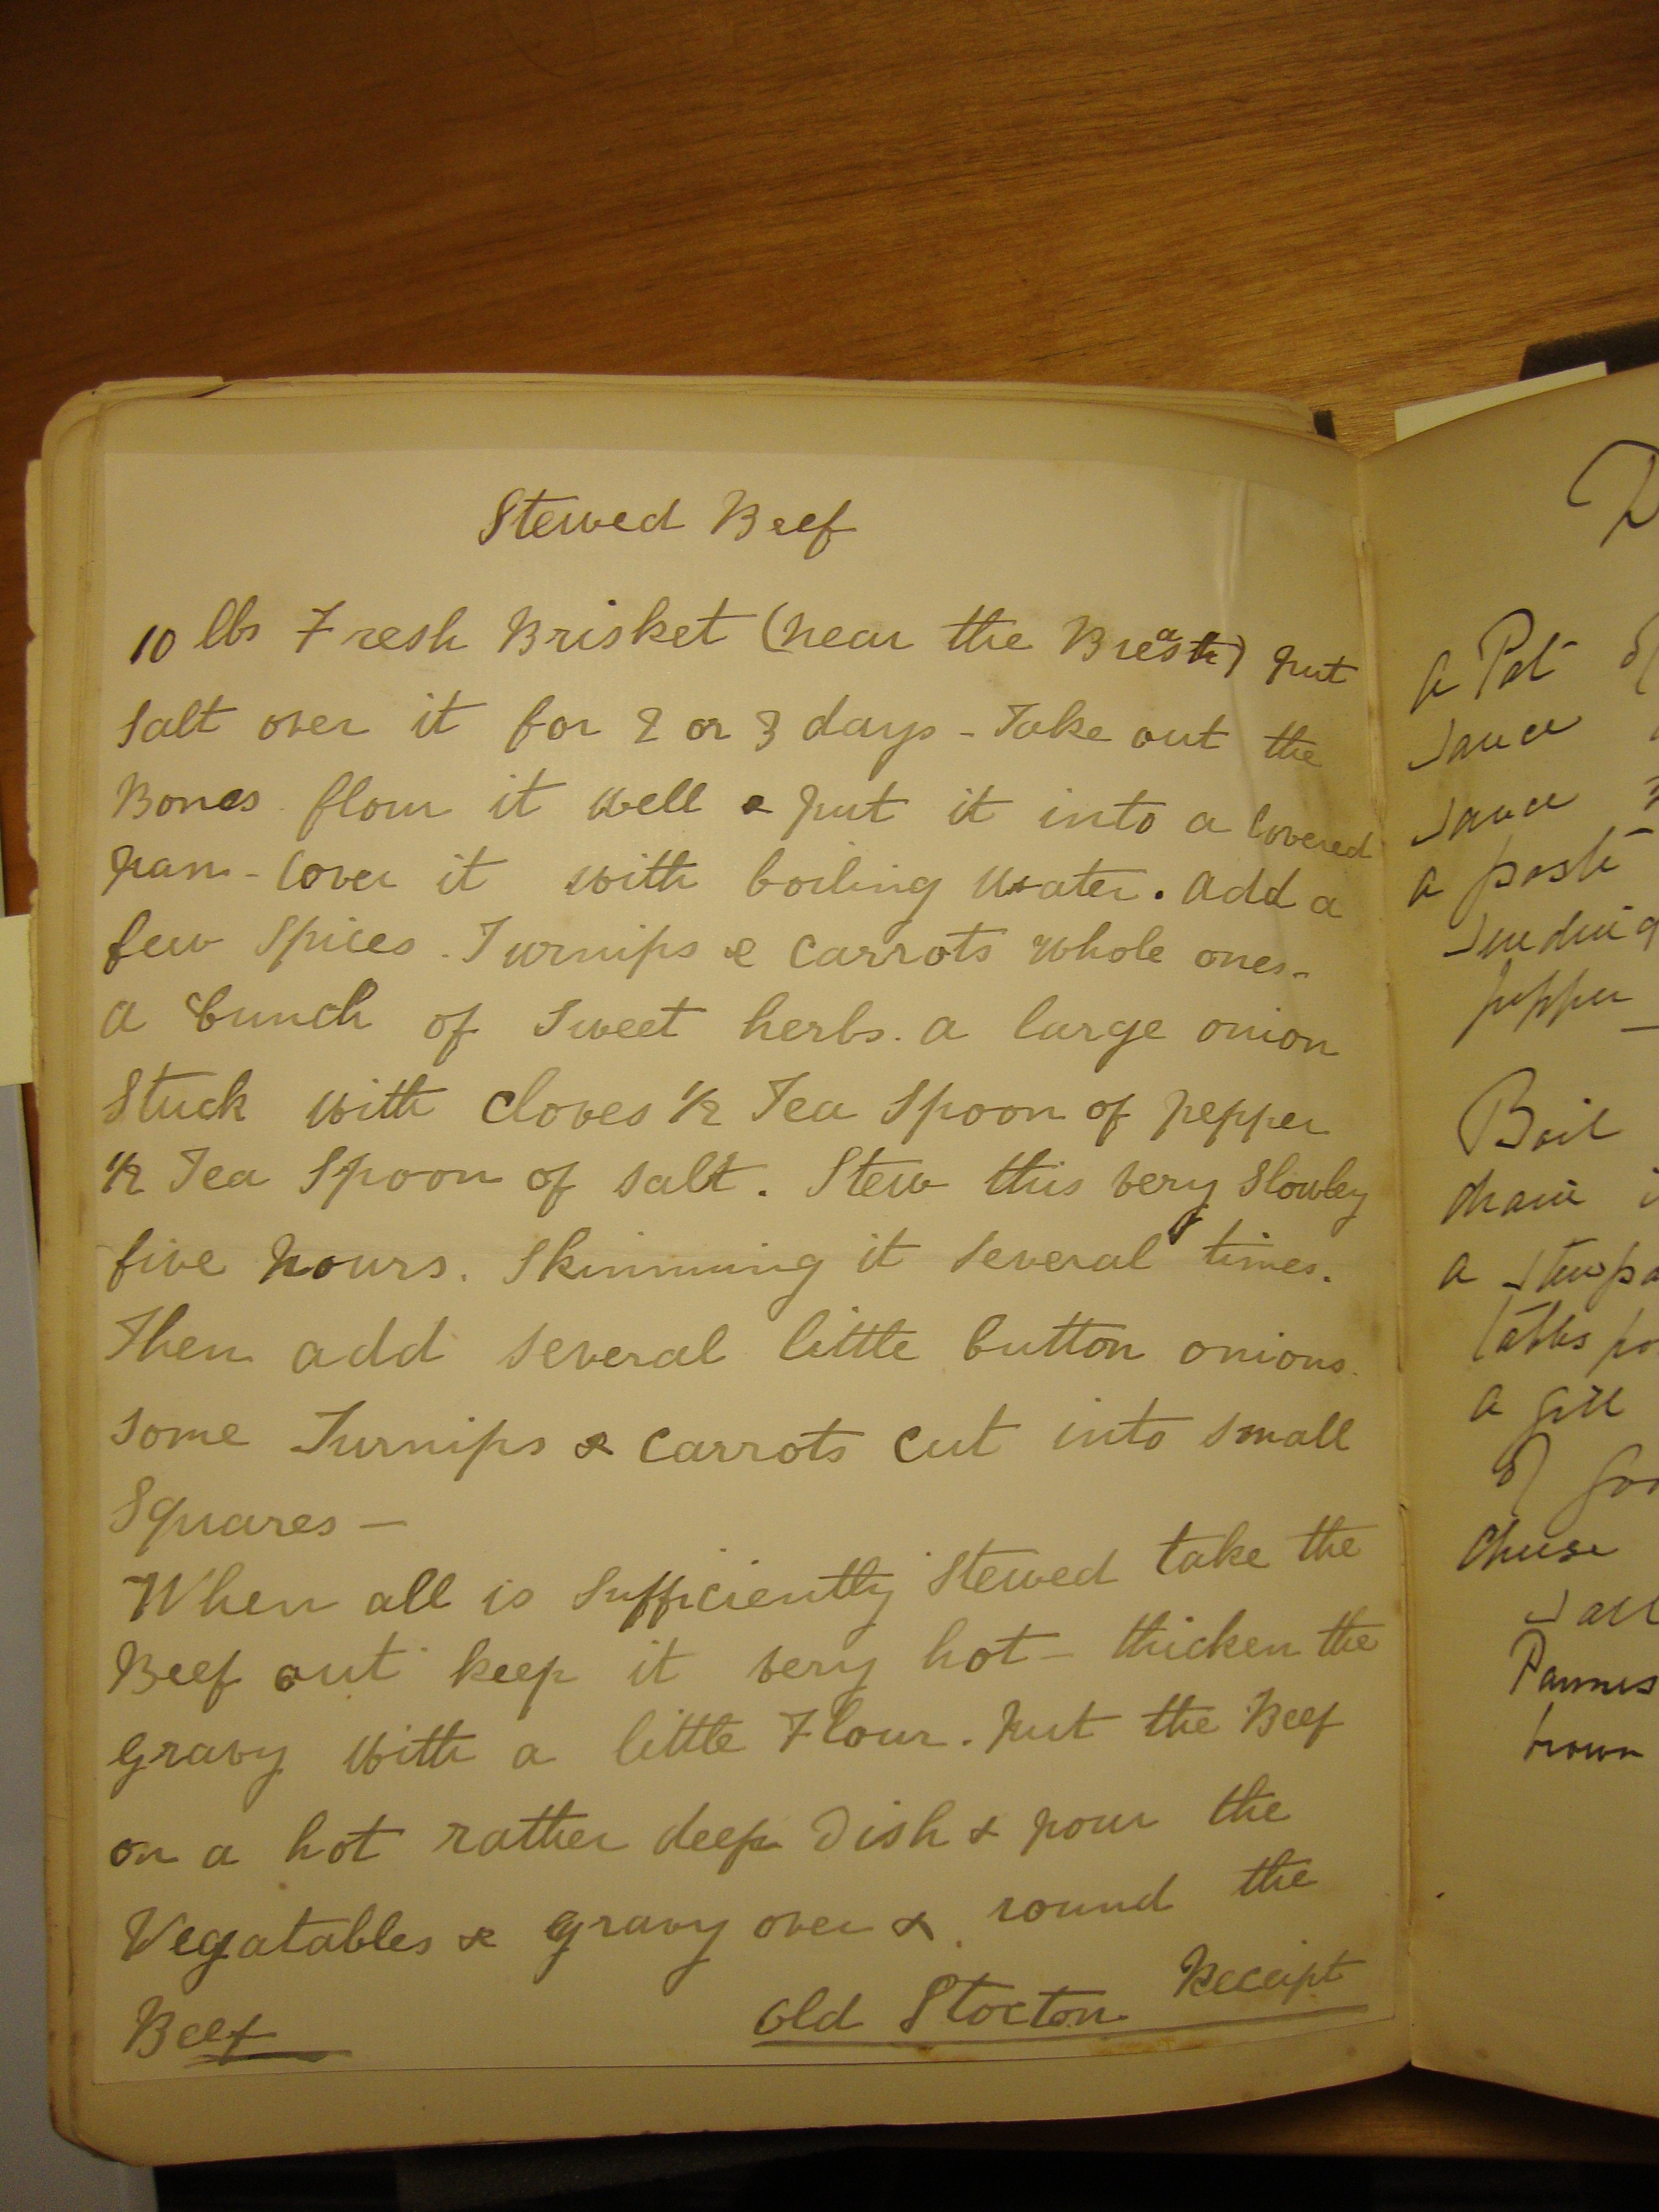 Stewed Beef
10 lbs Fresh Brisket (near the Breast) put
salt over it for 2 or 3 days - Take out the
Bones flour it well & put it into a Covered
pan - Cover it with boiling water. add a
few Spices. Turnips & Carrots whole ones -
a bunch of Sweet herbs. a large onion
Stuck with Cloves 1/2 Tea Spoon of pepper
1/2 Tea Spoon of salt. Stew this very Slowley
five hours. Skimming it several times.
Then add several little button onions.
some Turnips & Carrots cut into small
Squares —
When all is sufficiently Stewed take the
Beef out keep it very hot - thicken the
gravy with a little Flour. put the Beef
on a hot rather deep Dish & pour the
Vegatables & gravy over & round the
Beef
Old Stocton Receipt
a Pot of
Sauce
Sauce
a
pepper —
Boil
drain
a Stewpa
a gill
of
cheese
brown